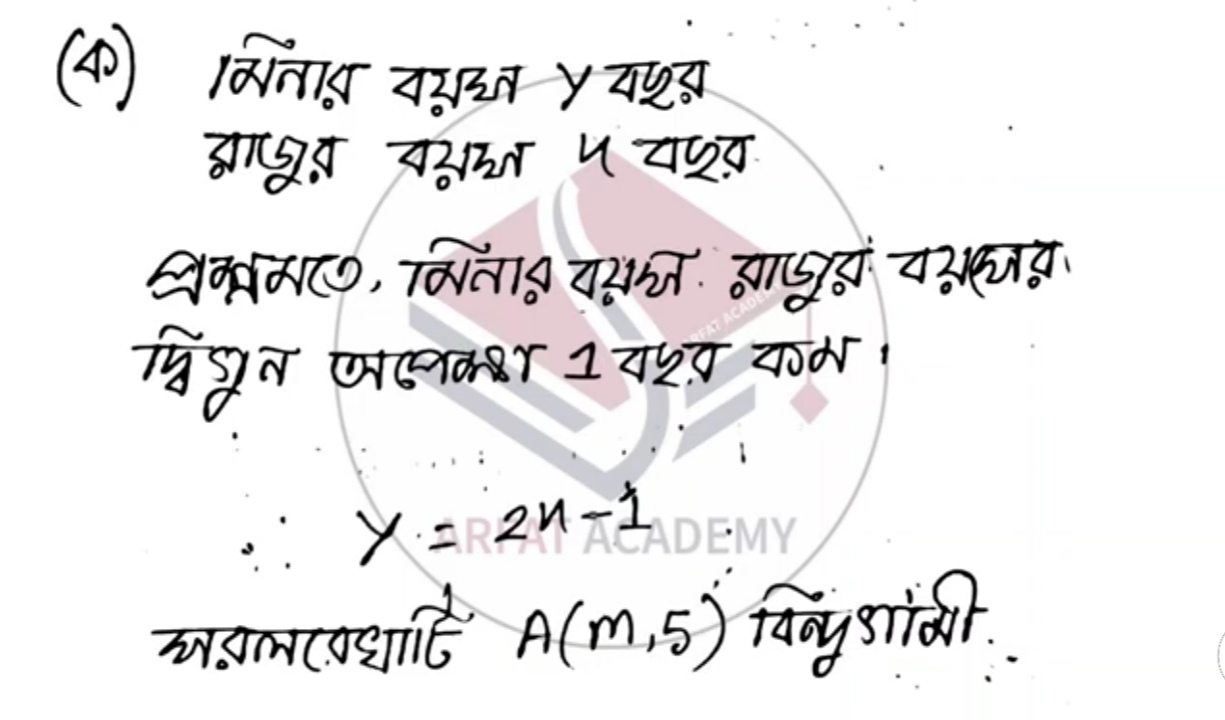 (ক) মিনার বয়স y বছর
রাজুর বয়স x বছর
প্রশ্নমতে, মিনার বয়স রাজুর বয়সের
দ্বিগুন অপেক্ষা 1 বছর কম।
∴ y = 2x - 1
ARFAT ACADEMY
সরলরেখাটি A(m,5) বিন্দুগামী.
ARFAT ACADEMY